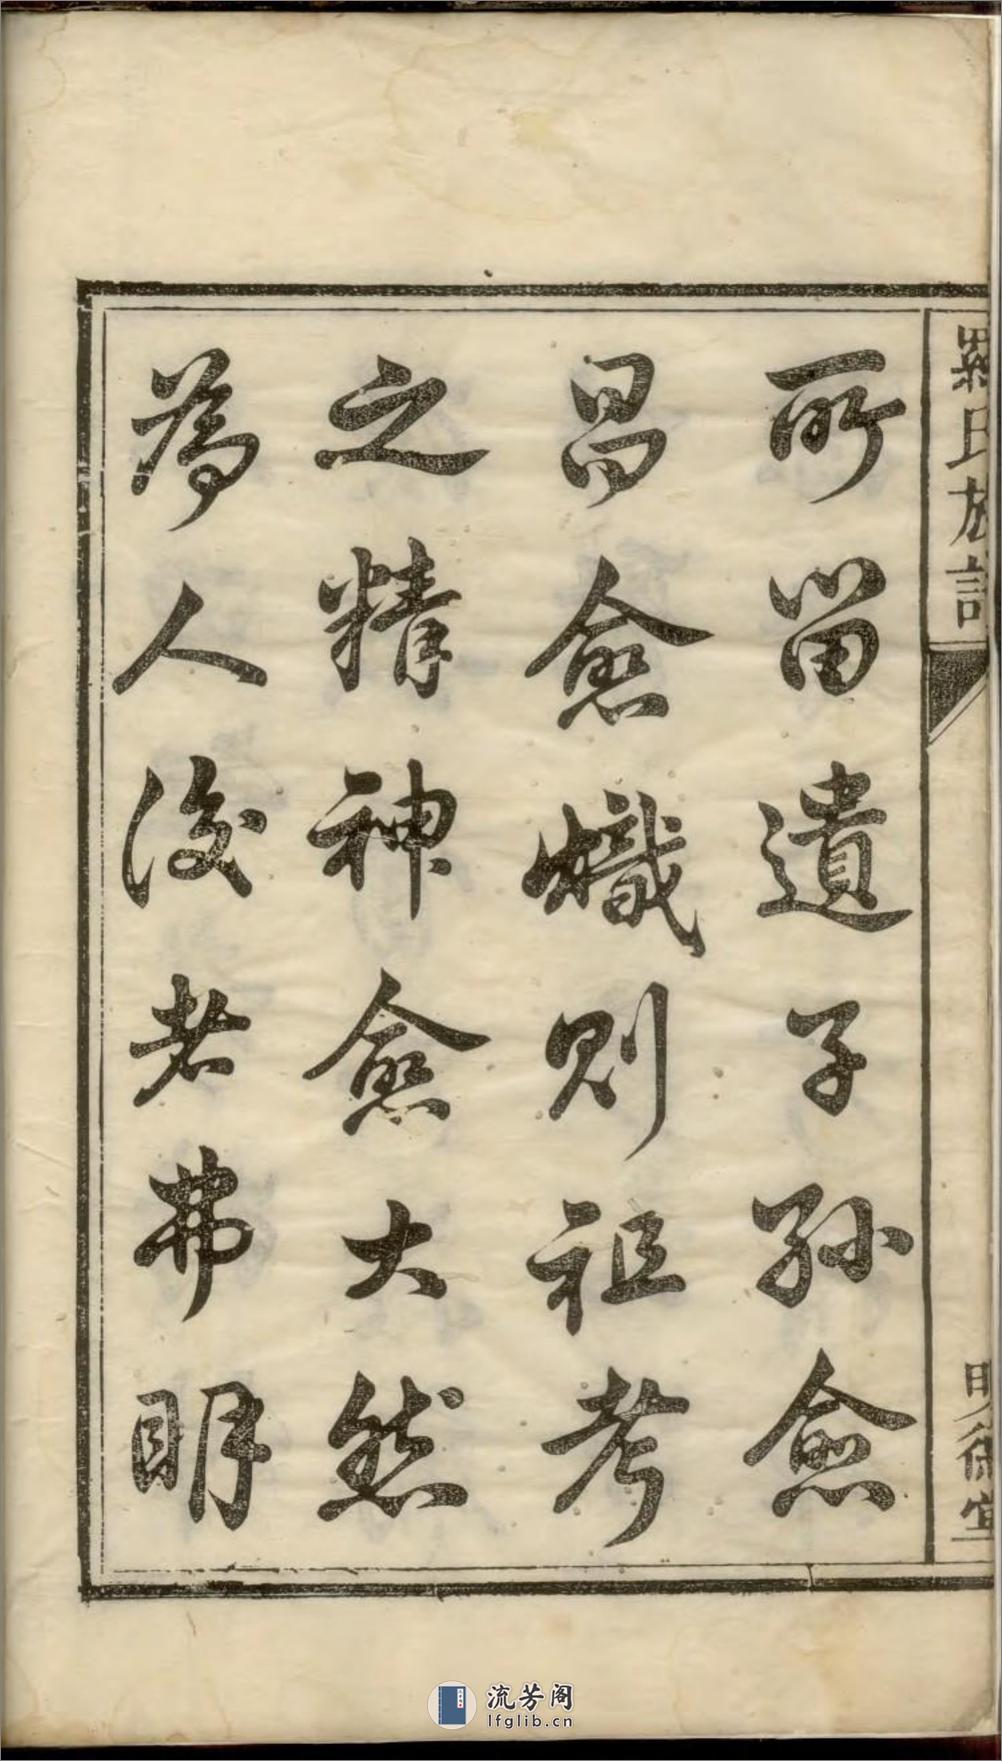 羅氏族譜
明德堂
所留遺子孫愈
昌愈熾則祖考
之精神愈大然
為人後者弗明
流芳阁
lfglib.cn